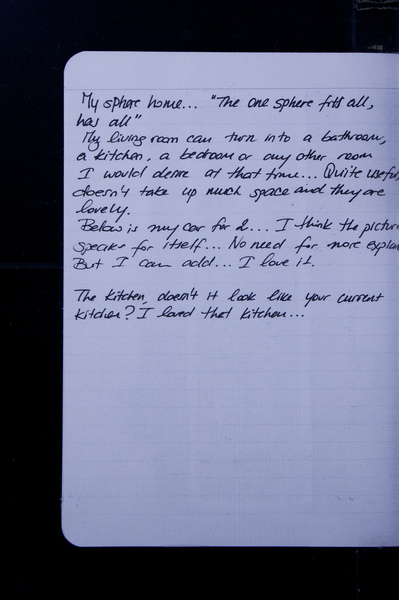 My sphere home... "The one sphere fits all,
has all"
My living room can turn into a bathroom,
a kitchen, a bedroom or any other room
I would desire at that time... Quite useful,
doesn't take up much space and they are
lovely.
Below is my car for 2... I think the picture
speaks for itself... No need for more explan
But I can add... I love it.
The kitchen, doesn't it look like your current
kitchen? I loved that kitchen...